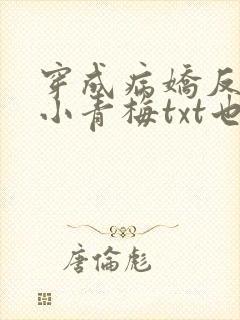 穿成病嬌反
小青梅txt也
唐倫彪